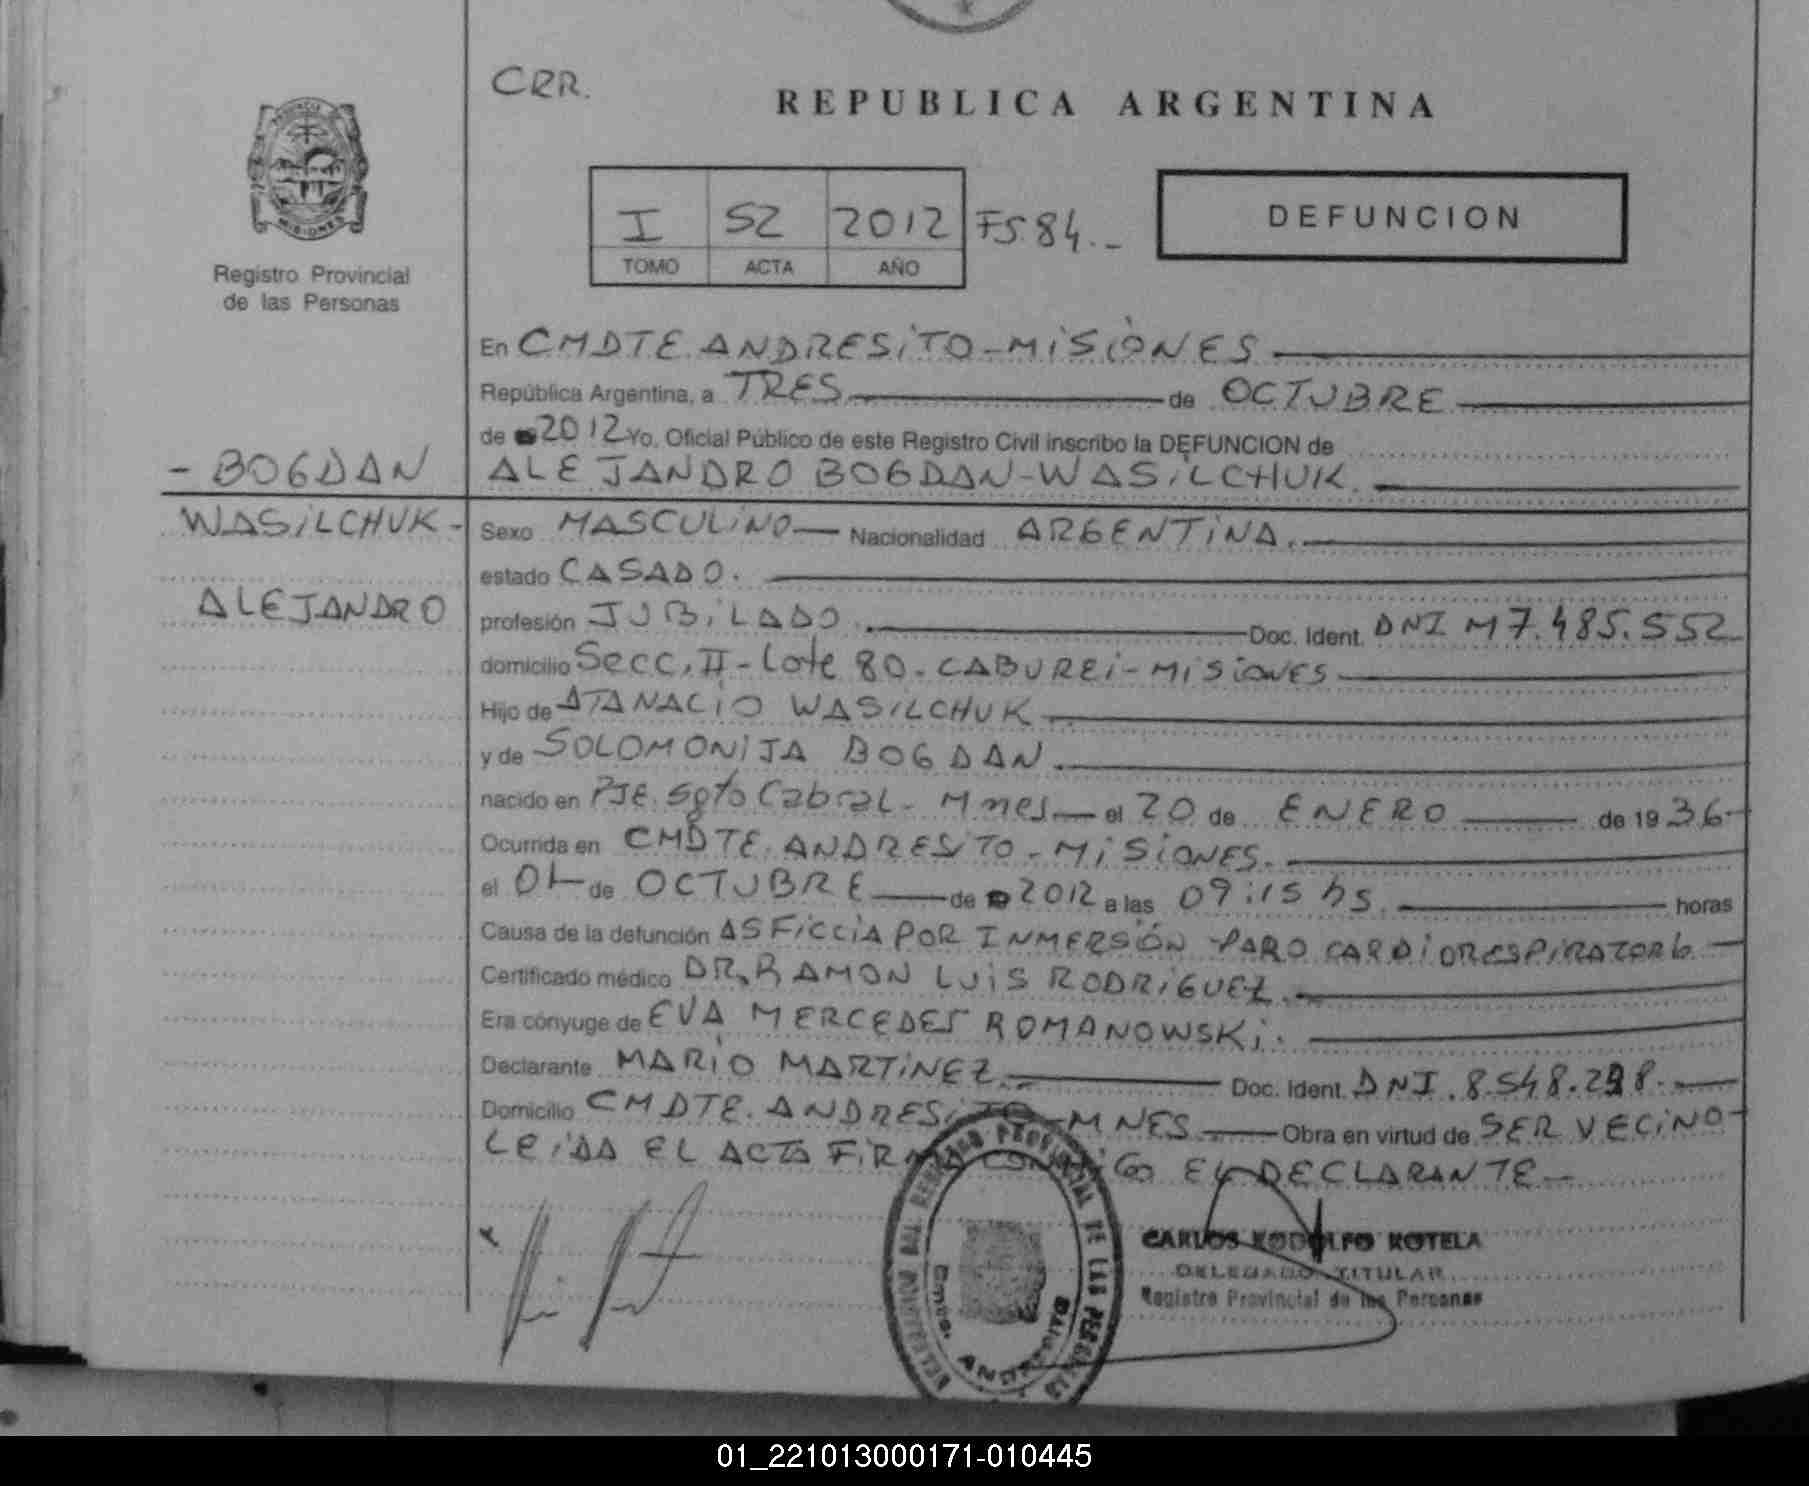 CRR.
REPUBLICA ARGENTINA
I 52 2012 FS.84.-
TOMO ACTA AÑO
DEFUNCION
MISIONES
Registro Provincial
de las Personas
En CMDTE ANDRESiTO-MiSiONES
República Argentina, a TRES de OCTUBRE
de 2012 Yo, Oficial Público de este Registro Civil inscribo la DEFUNCION de
- BOGDAN
ALEJANDRO BOGDAN-WASiLCHUK.
WASiLCHUK-
Sexo MASCULiNO Nacionalidad ARGENTiNA.
estado CASADO.
ALEJANDRO
profesión JUBiLADO. Doc. Ident. DNI M7.485.552
domicilio Secc. II - Lote 80. CABUREi-MiSiONES
Hijo de ATANACiO WASiLCHUK
y de SOLOMONiJA BOGDAN.
nacido en PJE. Sgto Cabral - Mnes el 20 de ENERO de 1936-
Ocurrida en CMDTE. ANDRESiTO-MiSiONES.
el 01 de OCTUBRE de 2012 a las 09:15 hs. horas
Causa de la defunción ASFiCCiA POR INMERSiÓN - PARO CARDiORESPiRATORiO
Certificado médico DR. RAMON LUiS RODRiGUEZ.
Era cónyuge de EVA MERCEDES ROMANOWSKi.
Declarante MARiO MARTiNEZ. Doc. Ident. DNI. 8.548.298.
Domicilio CMDTE. ANDRESiTO-MNES. Obra en virtud de SER VECiNO-
LEiDA EL ACTA FiRMA CONMiGO EL DECLARANTE-
CARLOS RODOLFO ROTELA
DELEGADO TITULAR
Registro Provincial de las Personas
01_221013000171-010445